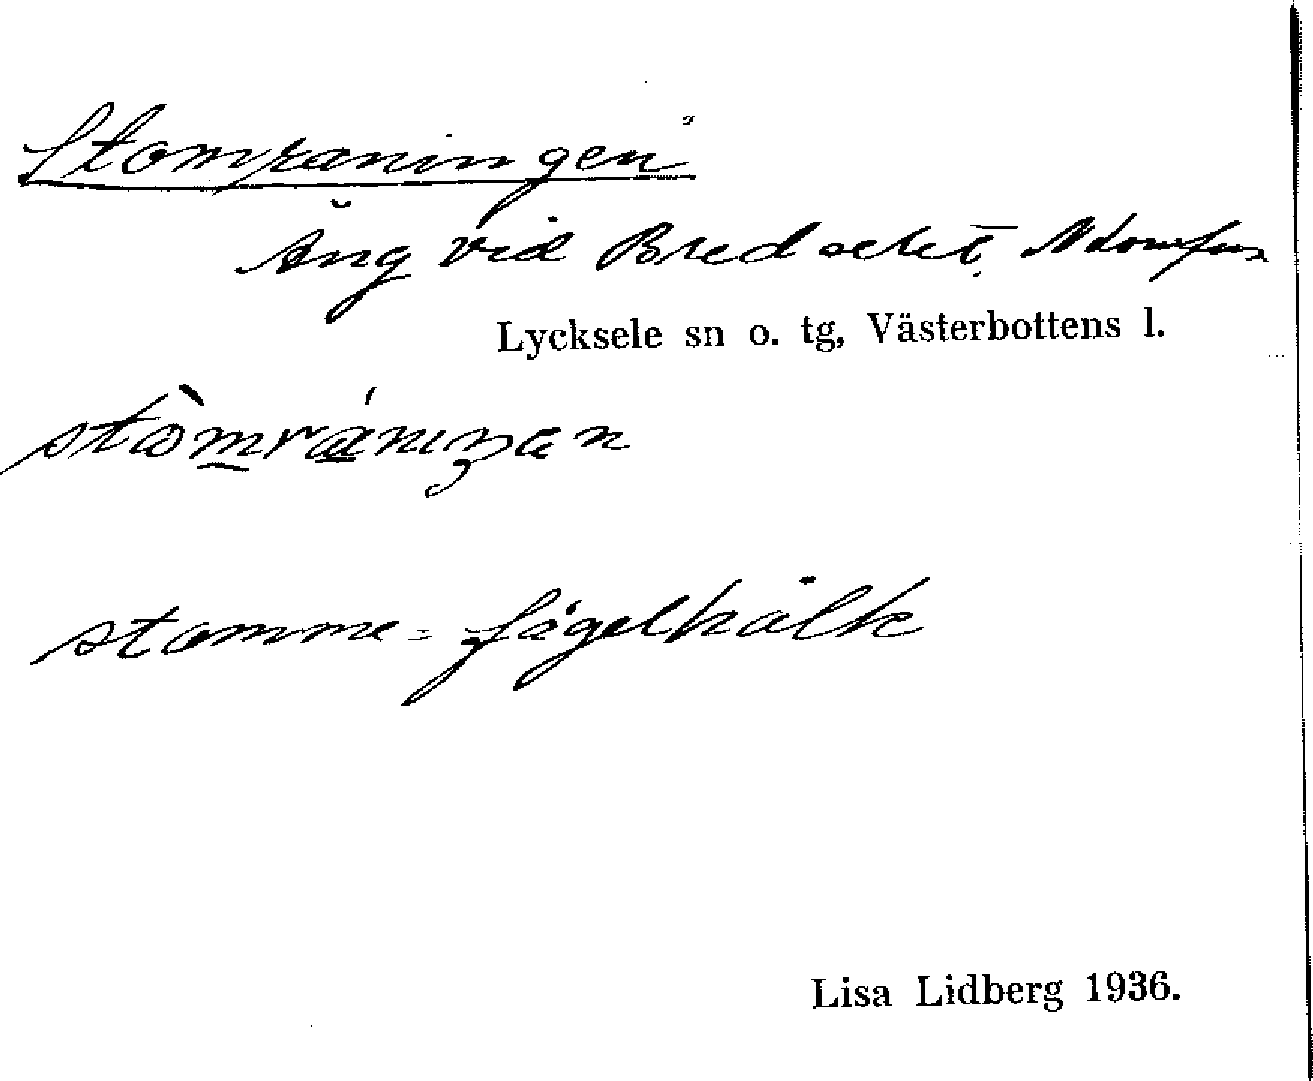 Stomraningen
Äng vid Bredselet,
Lycksele sn o. tg, Västerbottens l.
stòmrániŋan
stomme = fågelholk
Lisa Lidberg 1936.